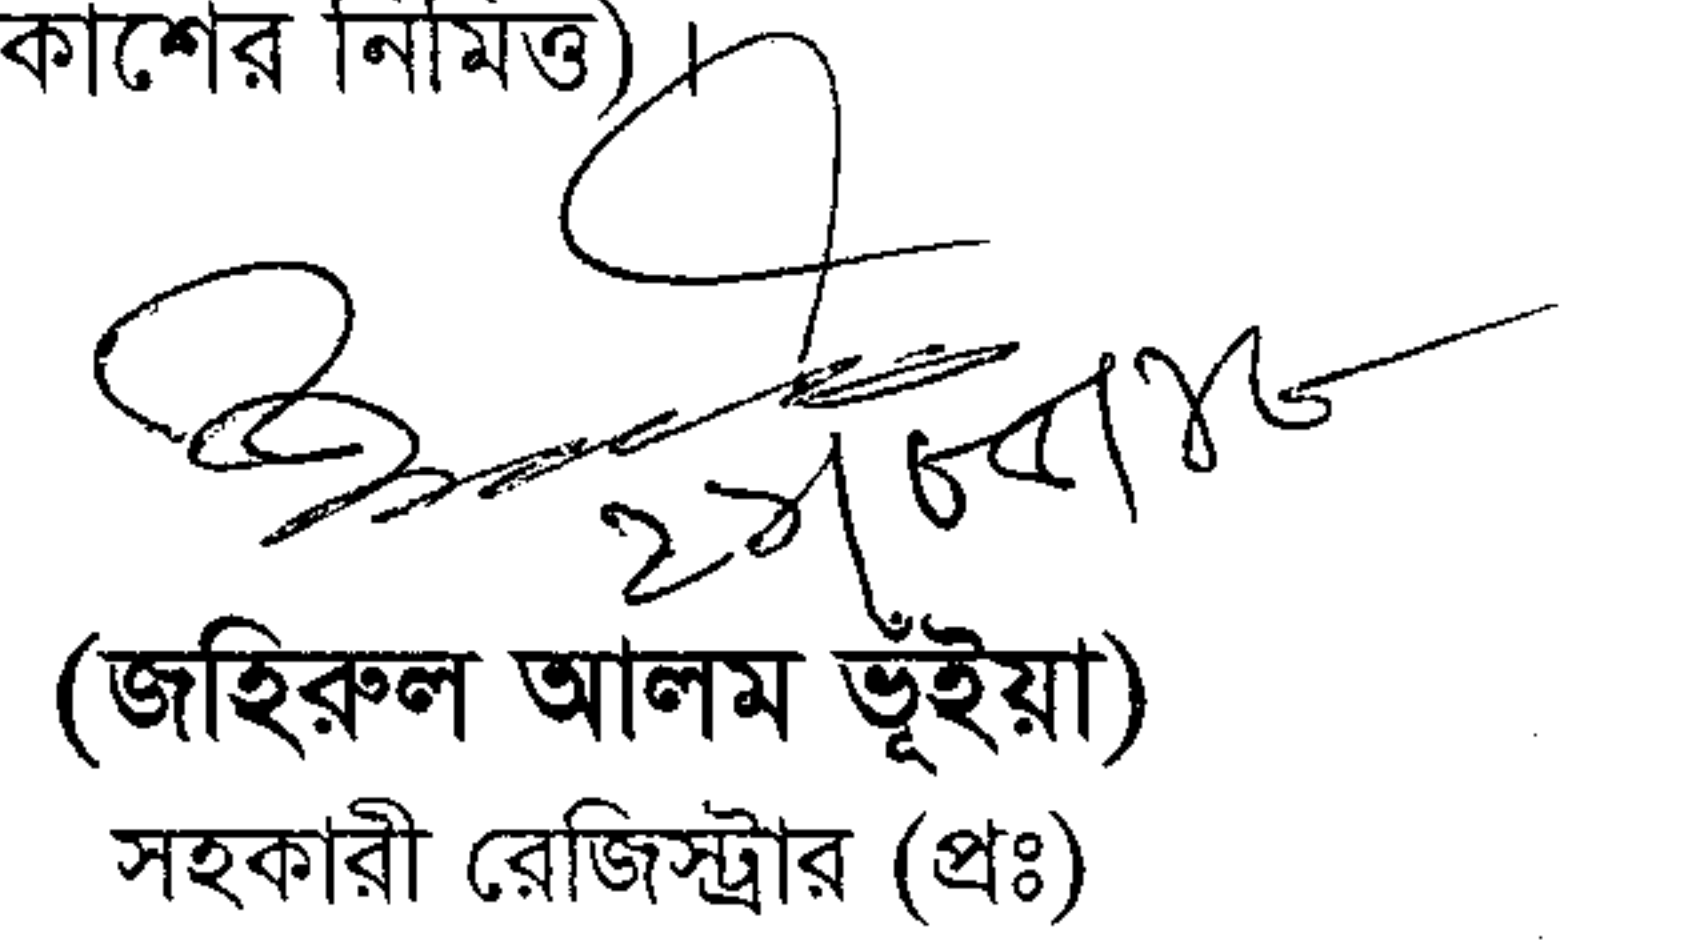 কাশের নিমিত্ত)।
(জহিরুল আলম ভূঁইয়া)
সহকারী রেজিস্ট্রার (প্রঃ)